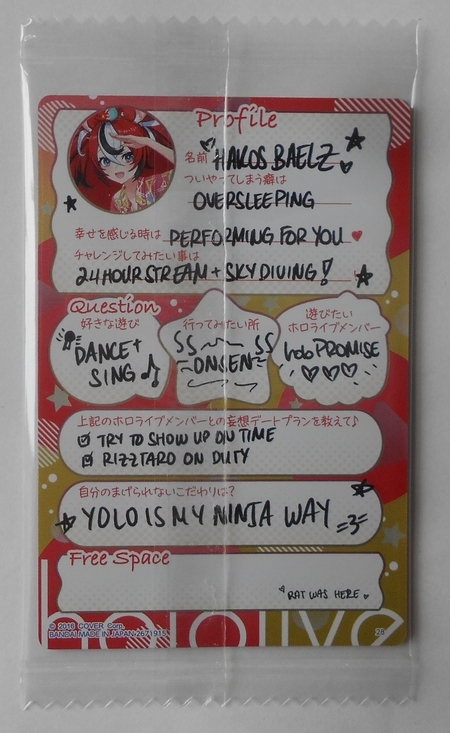 Profile
名前 HAKOS BAELZ
ついやってしまう癖は
OVERSLEEPING
幸せを感じる時は PERFORMING FOR YOU
チャレンジしてみたい事は
24 HOUR STREAM + SKY DIVING!
Question
好きな遊び
DANCE +
SING
行ってみたい所
ONSEN
遊びたい
ホロライブメンバー
holoPROMISE
上記のホロライブメンバーとの妄想デートプランを教えて♪
TRY TO SHOW UP ON TIME
RIZZTARO ON DUTY
自分のまげられないこだわりは?
YOLO IS MY NINJA WAY
Free Space
RAT WAS HERE
© 2016 COVER Corp.
BANDAI MADE IN JAPAN 2671913
28
hololive